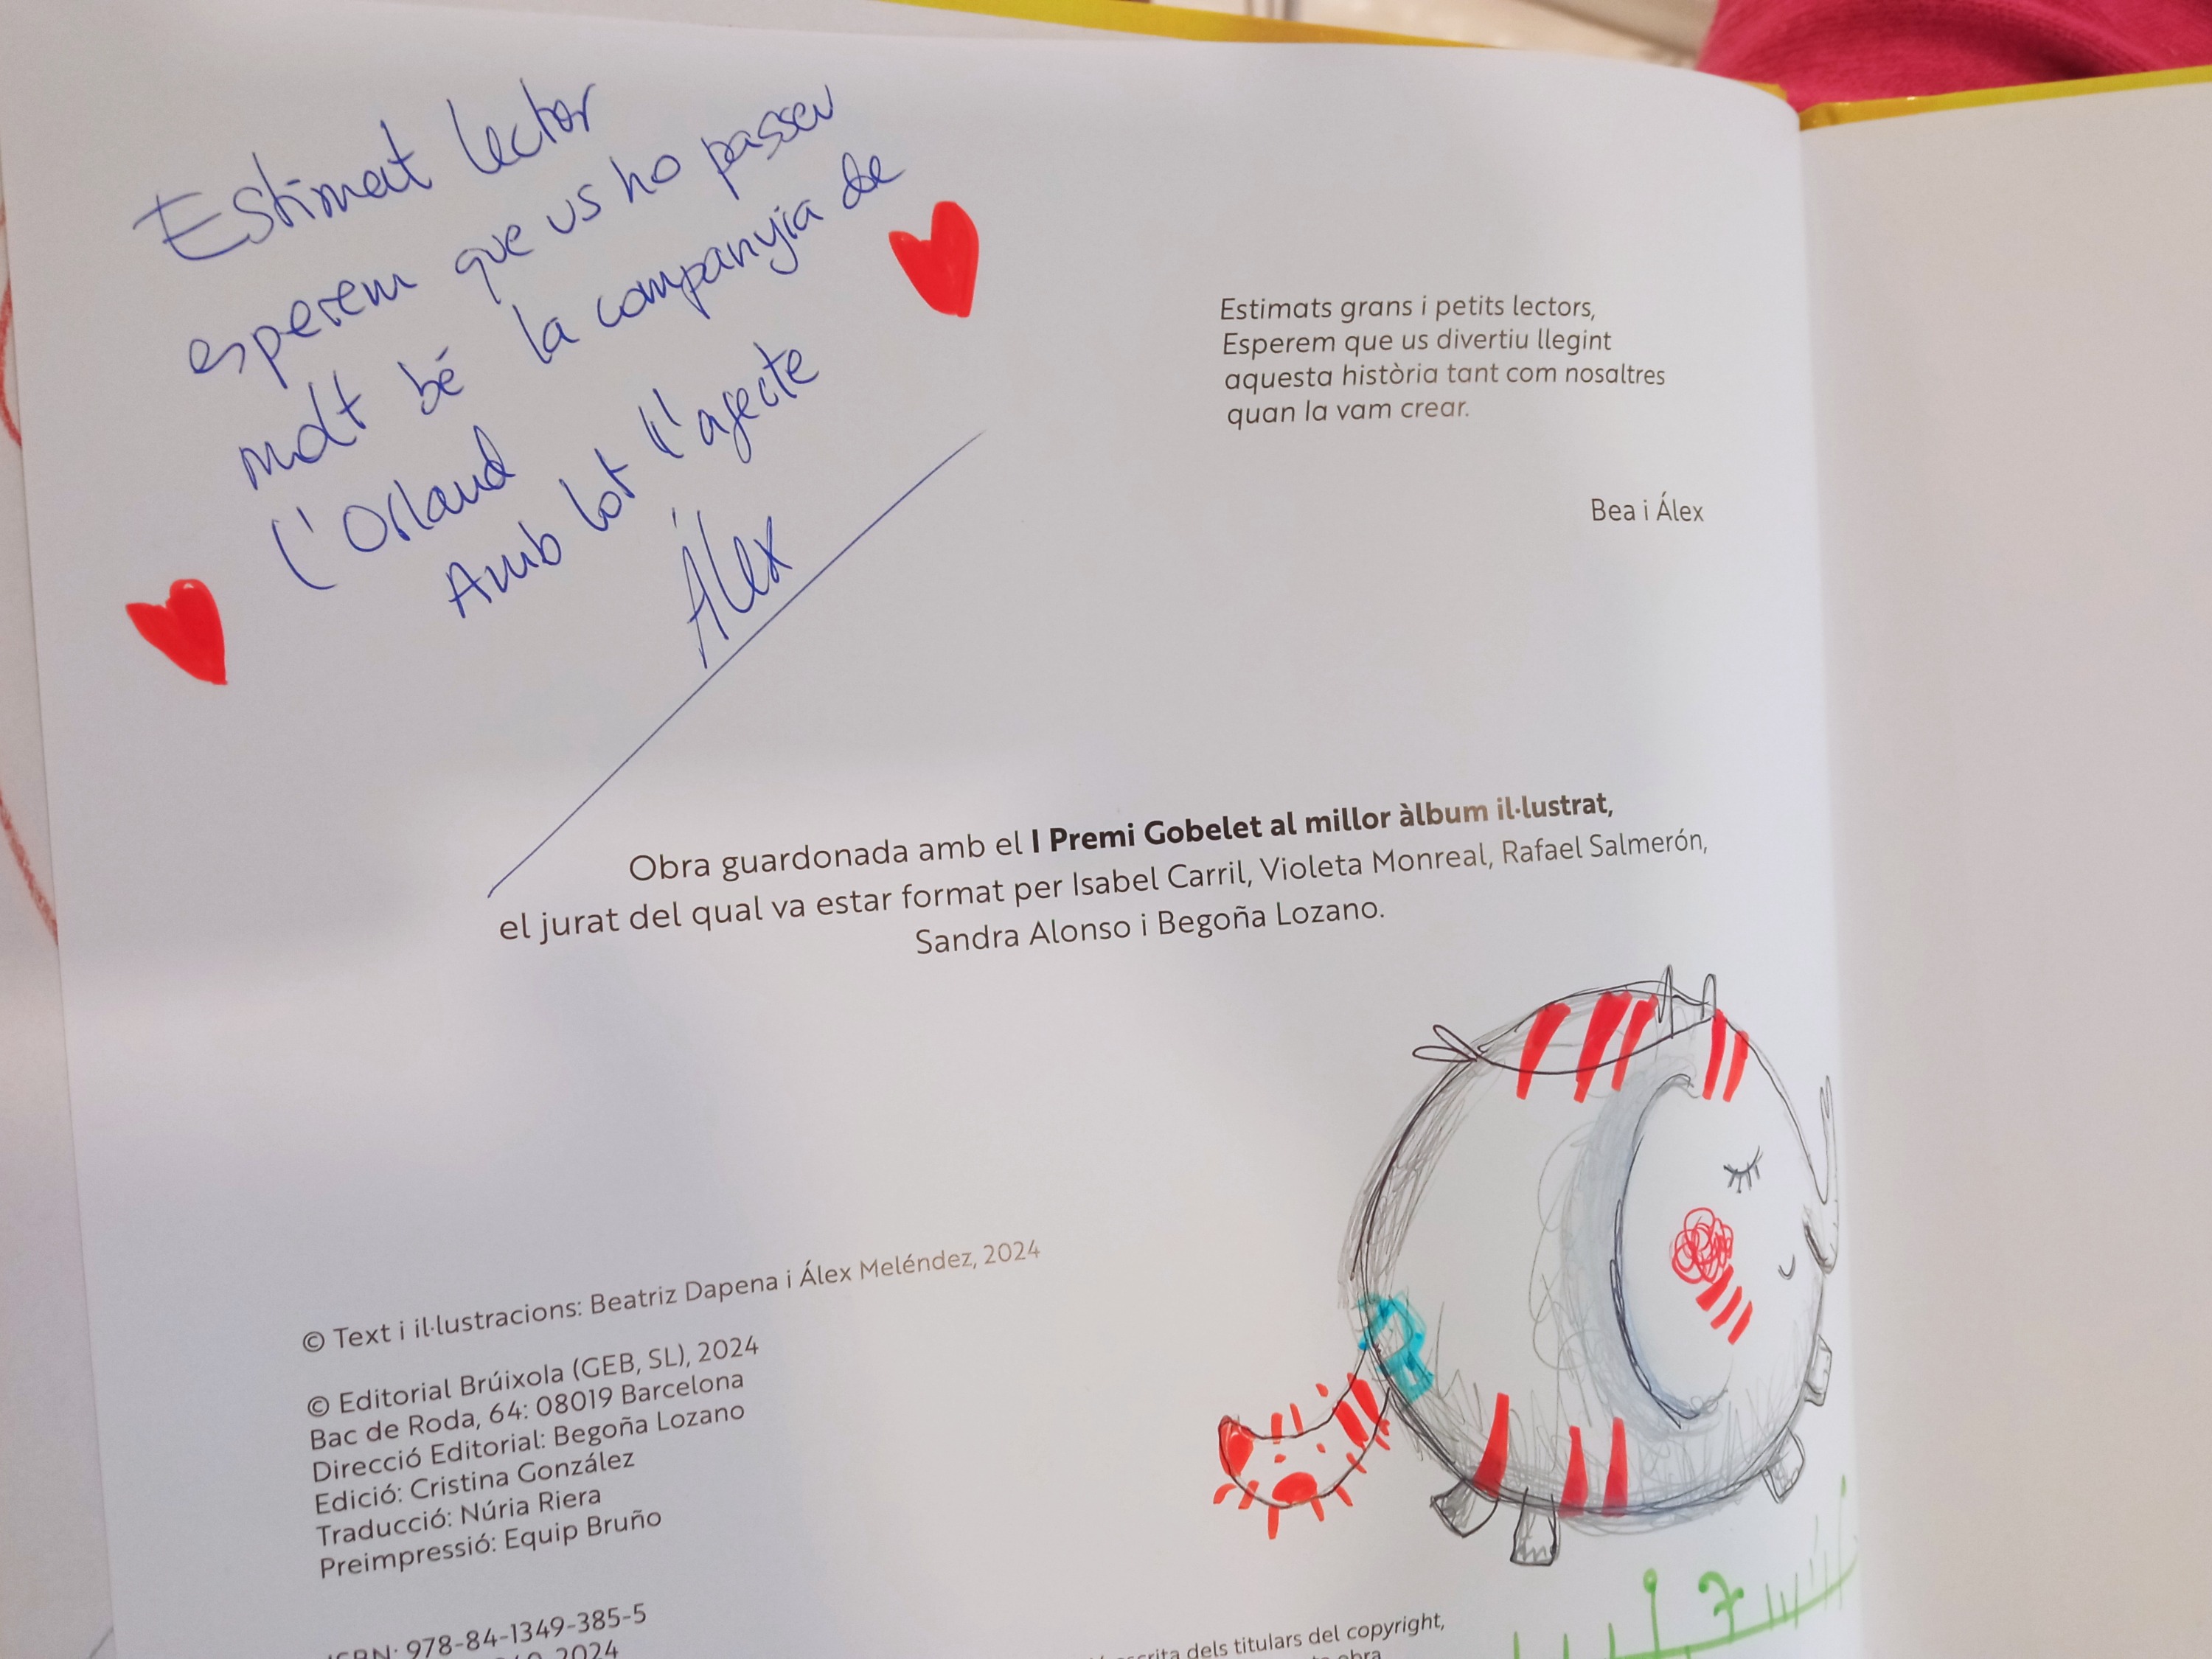 Estimat lector
esperem que us ho passeu
molt bé la companyia de
l'Orland
Amb tot l'afecte
Álex
Estimats grans i petits lectors,
Esperem que us divertiu llegint
aquesta història tant com nosaltres
quan la vam crear.
Bea i Álex
Obra guardonada amb el I Premi Gobelet al millor àlbum il·lustrat,
el jurat del qual va estar format per Isabel Carril, Violeta Monreal, Rafael Salmerón,
Sandra Alonso i Begoña Lozano.
© Text i il·lustracions: Beatriz Dapena i Álex Meléndez, 2024
© Editorial Brúixola (GEB, SL), 2024
Bac de Roda, 64: 08019 Barcelona
Direcció Editorial: Begoña Lozano
Edició: Cristina González
Traducció: Núria Riera
Preimpressió: Equip Bruño
ISBN: 978-84-1349-385-5
2024
dels titulars del copyright,
obra